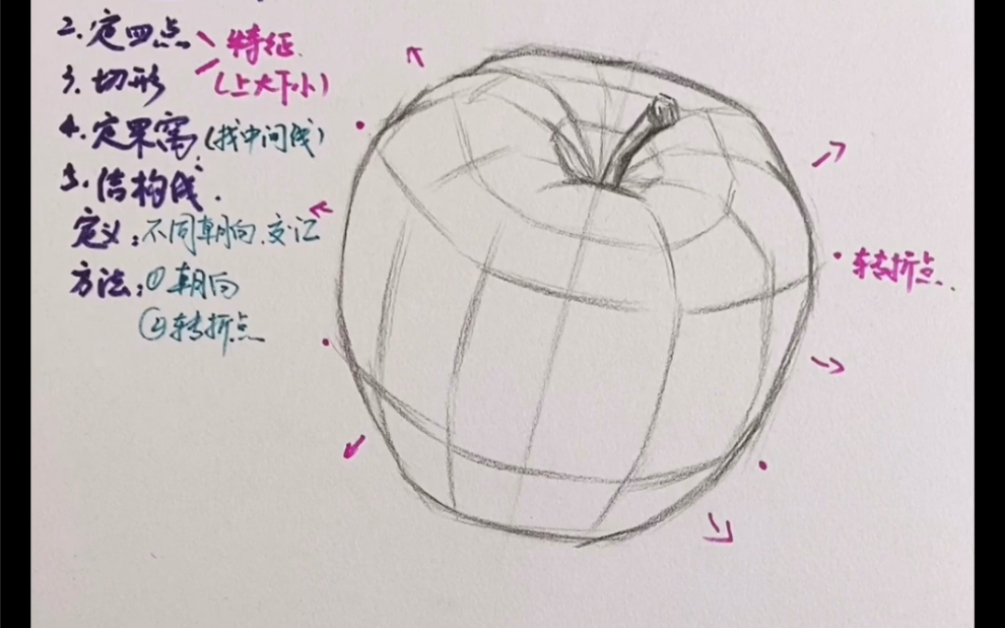 2.定四点
特征
3.切形
(上大下小)
4.定果窝(找中间线)
5.结构线.
定义:不同朝向.交汇
方法:①朝向
②转折点
转折点.